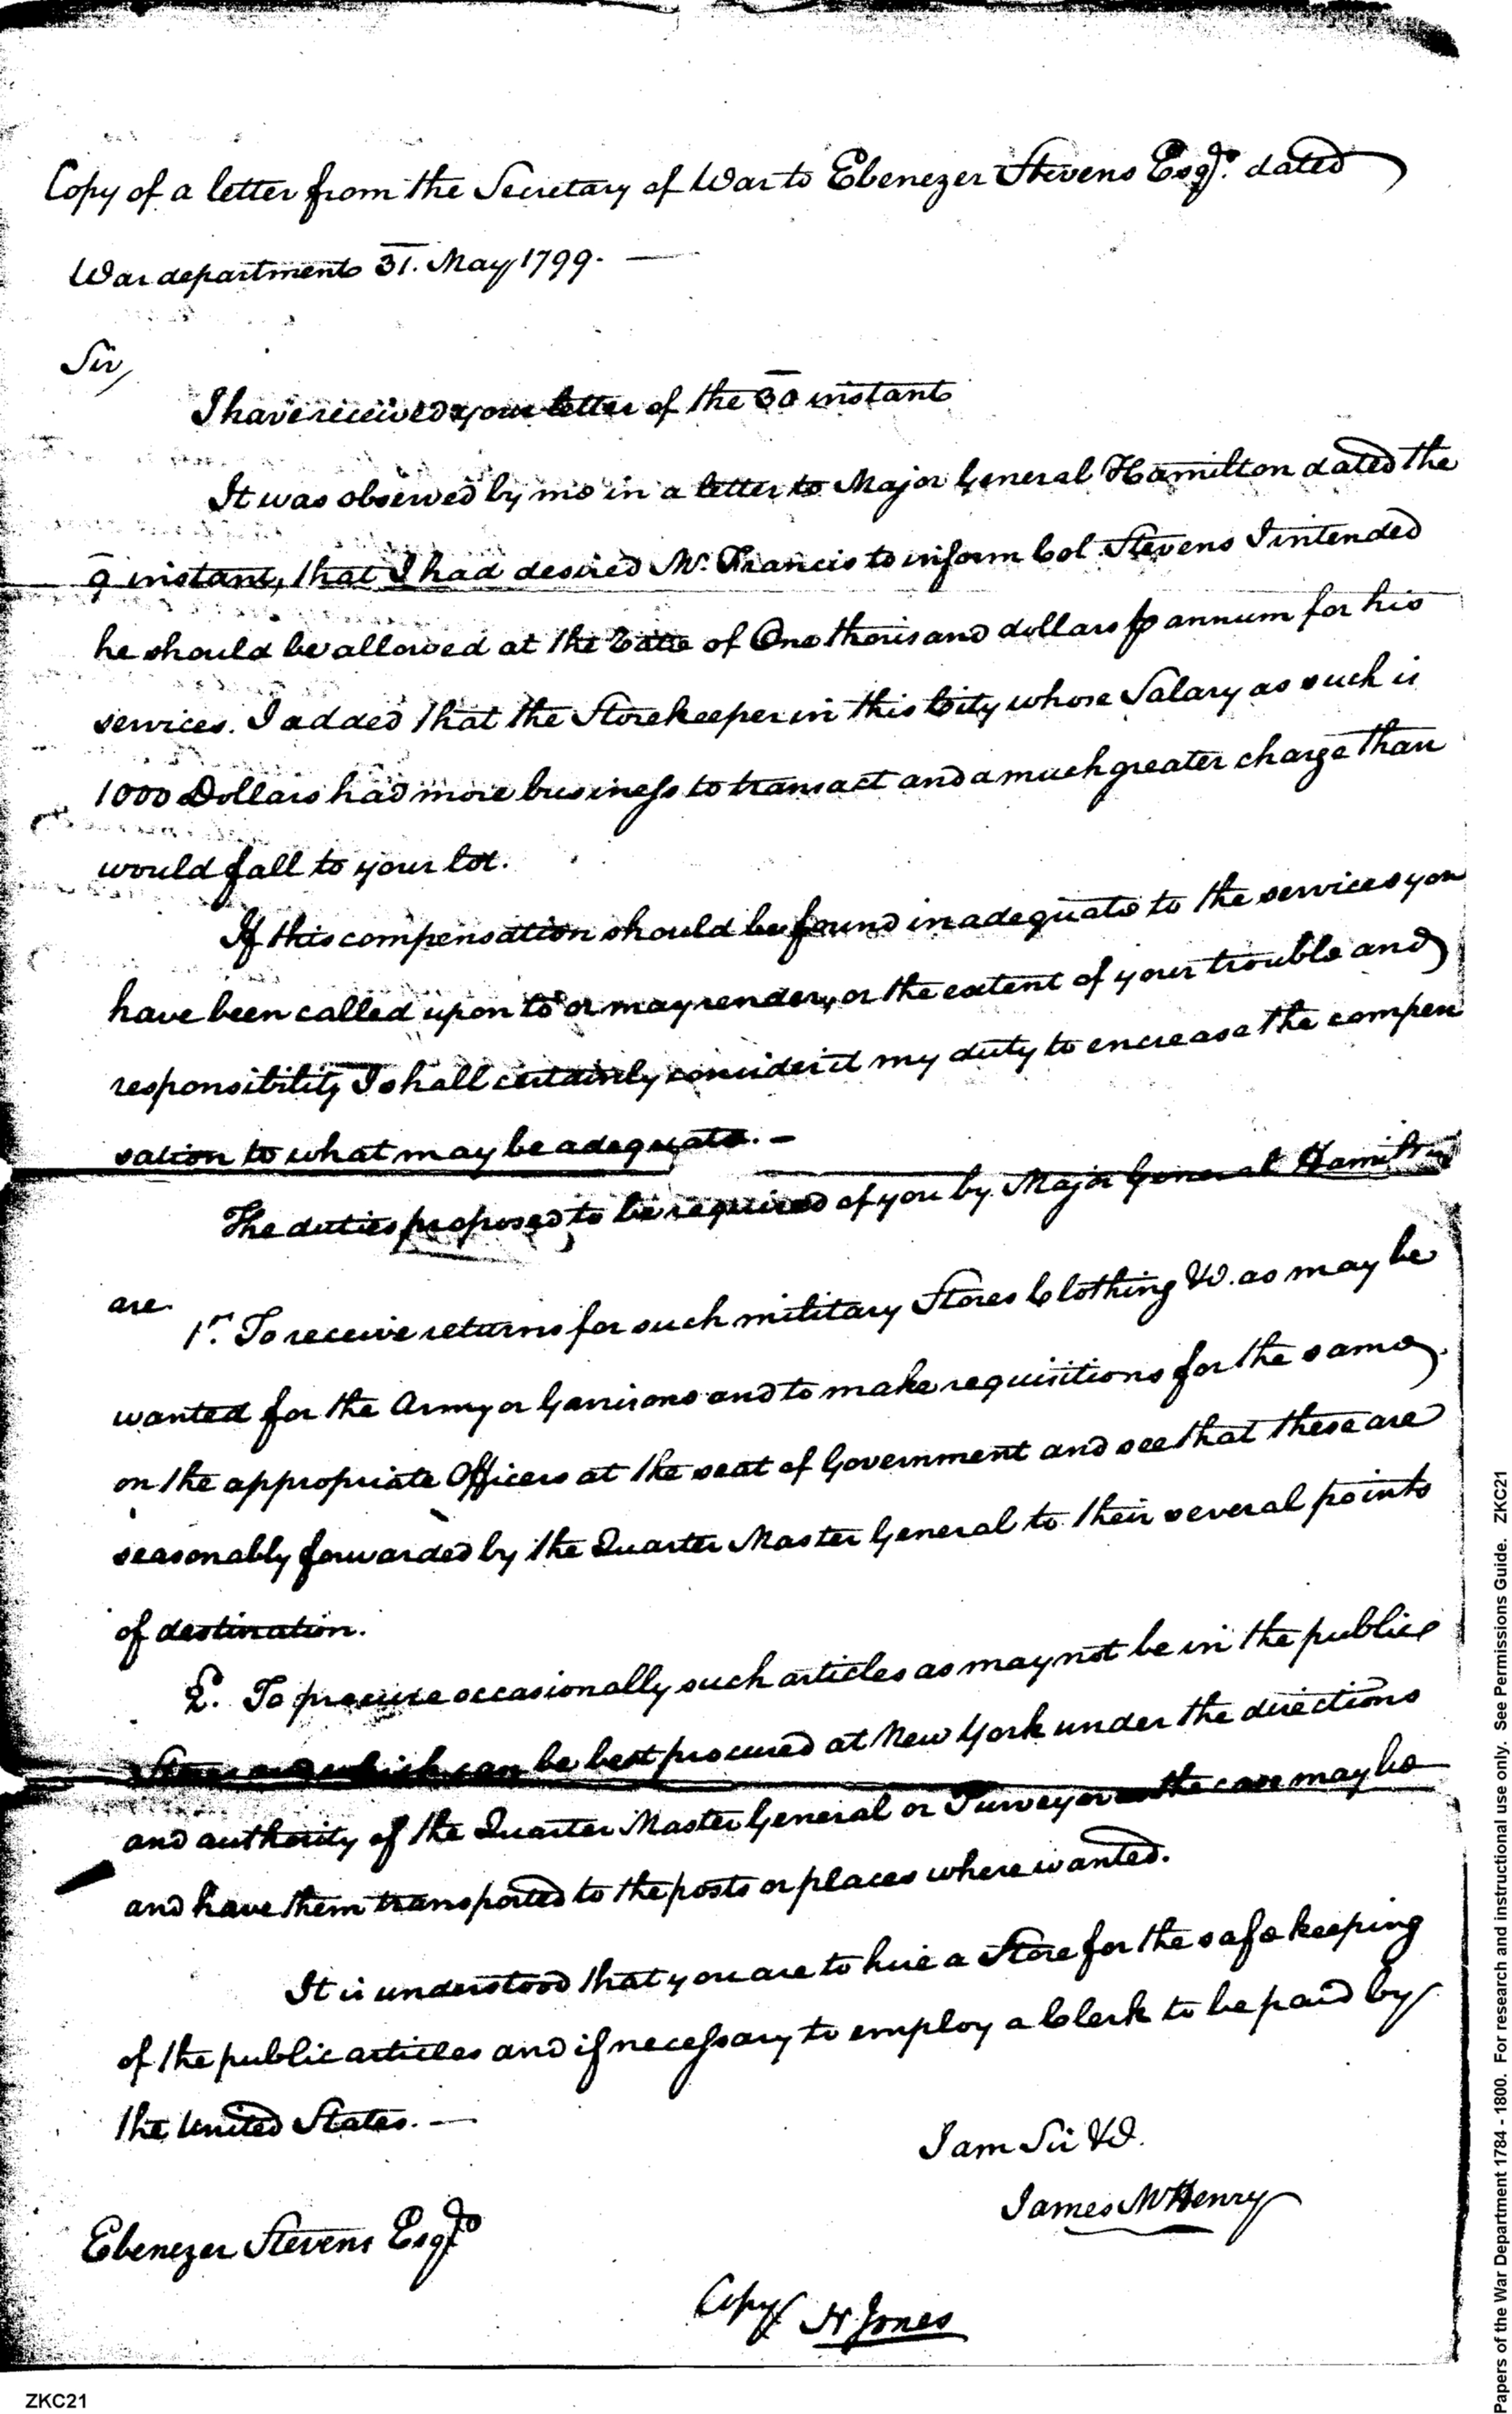 Copy of a letter from the Secretary of War to Ebenezer Stevens Esqr. dated
War department 31. May 1799. —
Sir,
I have received your letter of the 30 instant
It was observed by me in a letter to Major General Hamilton dated the
9 instant, that I had desired Mr. Francis to inform Col Stevens I intended
he should be allowed at the rate of One thousand dollars ⅌ annum for his
services. I added that the Storekeeper in this City whose Salary as such is
1000 Dollars had more business to transact and a much greater charge than
would fall to your lot.
If this compensation should be found inadequate to the services you
have been called upon to or may render, or the extent of your trouble and
responsibility I shall certainly consider it my duty to encrease the compen
sation to what may be adequate. —
The duties proposed to be required of you by Major General Hamilton
are
1st. To receive returns for such military Stores Clothing &c. as may be
wanted for the Army or Garrisons and to make requisitions for the same
on the appropriate Officers at the seat of Government and see that these are
seasonably forwarded by the Quarter Master General to their several points
of destination.
2. To procure occasionally such articles as may not be in the public
Stores and which can be best procured at New York under the directions
and authority of the Quarter Master General or Purveyor as the case may be
and have them transported to the posts or places where wanted.
It is understood that you are to hire a Store for the safe keeping
of the public articles and if necessary to employ a Clerk to be paid by
the United States. —
I am Sir &c.
James McHenry
Ebenezer Stevens Esqr
Copy N Jones
ZKC21
Papers of the War Department 1784 - 1800. For research and instructional use only. See Permissions Guide. ZKC21